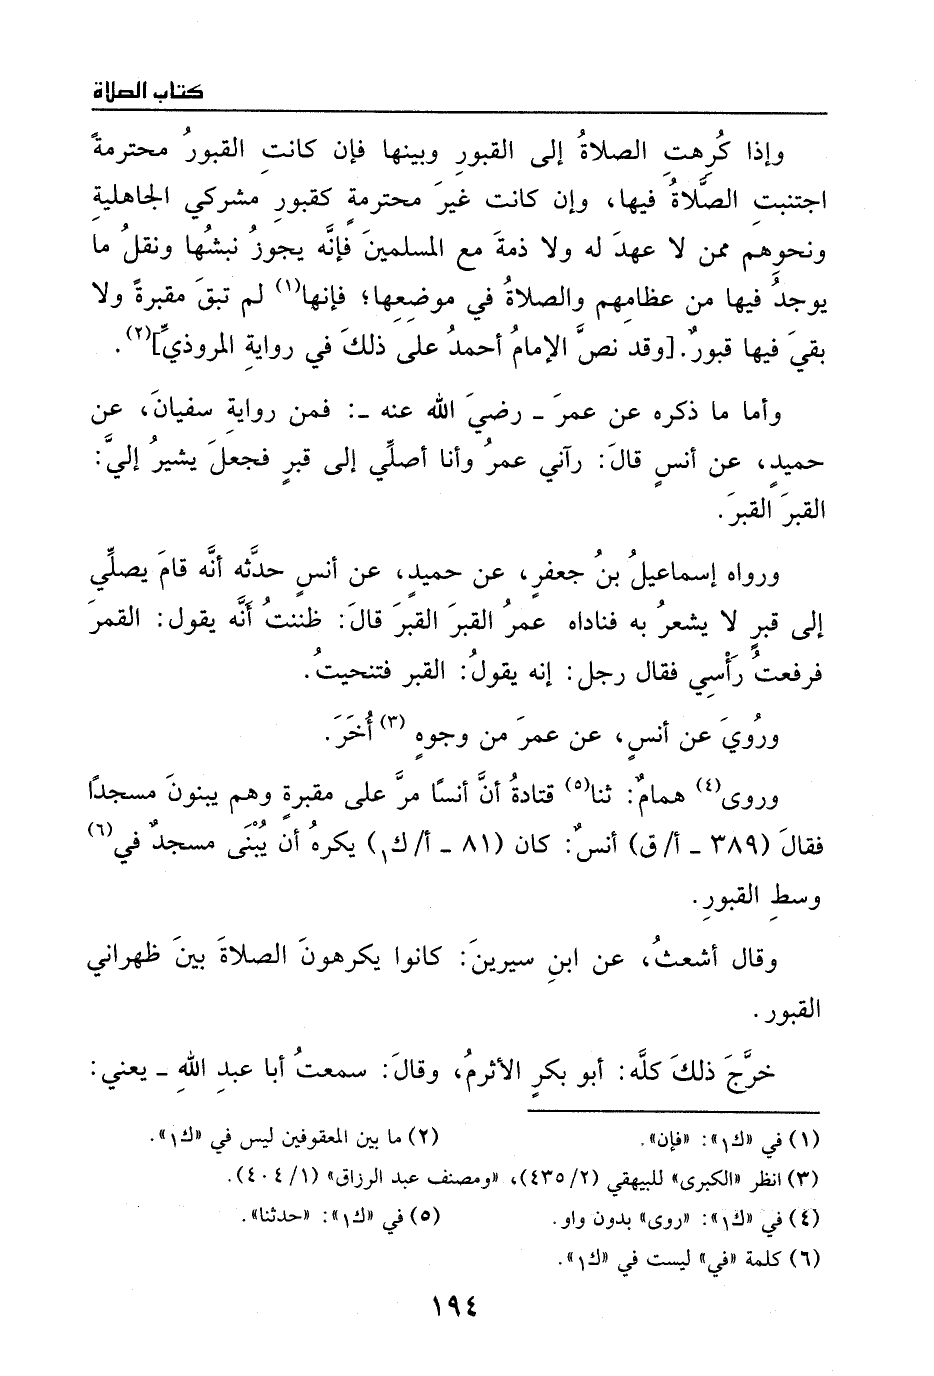 كتاب الصلاة
وإذا كُرِهت الصلاةُ إلى القبورِ وبينها فإن كانتِ القبورُ محترمةً
اجتنبتِ الصَّلاةُ فيها، وإن كانت غيرَ محترمةٍ كقبورِ مشركي الجاهليةِ
ونحوِهم ممن لا عهدَ له ولا ذمةَ مع المسلمينَ فإنَّه يجوزُ نبشُها ونقلُ ما
يوجدُ فيها من عظامِهم والصلاةُ في موضعِها؛ فإنها(١) لم تبقَ مقبرةً ولا
بقيَ فيها قبورٌ. [وقد نصَّ الإمامُ أحمدُ على ذلكَ في روايةِ المروذيِّ](٢).
وأما ما ذكره عن عمرَ ـ رضيَ الله عنه ـ: فمن روايةِ سفيانَ، عن
حميدٍ، عن أنسٍ قالَ: رآني عمرُ وأنا أصلِّي إلى قبرٍ فجعلَ يشيرُ إليَّ:
القبرَ القبرَ.
ورواه إسماعيلُ بنُ جعفرٍ، عن حميدٍ، عن أنسٍ حدَّثه أنَّه قامَ يصلِّي
إلى قبرٍ لا يشعرُ به فناداه عمرُ القبرَ القبرَ قالَ: ظننتُ أَنَّه يقول: القمرَ
فرفعتُ رَأْسِي فقال رجل: إنه يقولُ: القبر فتنحيتُ.
ورُويَ عن أنسٍ، عن عمرَ من وجوهٍ (٣) أُخَرَ.
وروى(٤) همامٌ: ثنا(٥) قتادةُ أنَّ أنسًا مرَّ على مقبرةٍ وهم يبنونَ مسجدًا
فقالَ (٣٨٩ ـ أ/ ق) أنسٌ: كان (٨١ ـ أ/ ك١) يكرهُ أن يُبْنَى مسجدٌ في(٦)
وسطِ القبورِ.
وقال أشعثُ، عن ابنِ سيرينَ: كانوا يكرهونَ الصلاةَ بينَ ظهراني
القبور.
خرَّجَ ذلكَ كلَّه: أبو بكرٍ الأثرمُ، وقالَ: سمعتُ أبا عبدِ اللهِ ـ يعني:
(١) في «ك١»: «فإن». (٢) ما بين المعقوفين ليس في «ك١».
(٣) انظر «الكبرى» للبيهقي (٤٣٥/٢)، «ومصنف عبد الرزاق» (٤٠٤/١).
(٤) في «ك١»: «روى» بدون واو. (٥) في «ك١»: «حدثنا».
(٦) كلمة «في» ليست في «ك١».
١٩٤